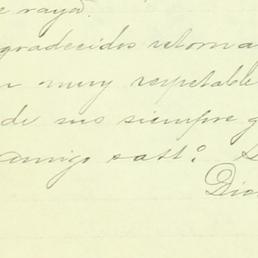 e rayad
gradecidos retorna
muy respetable
de uds siempre
amigo satto.
Dio